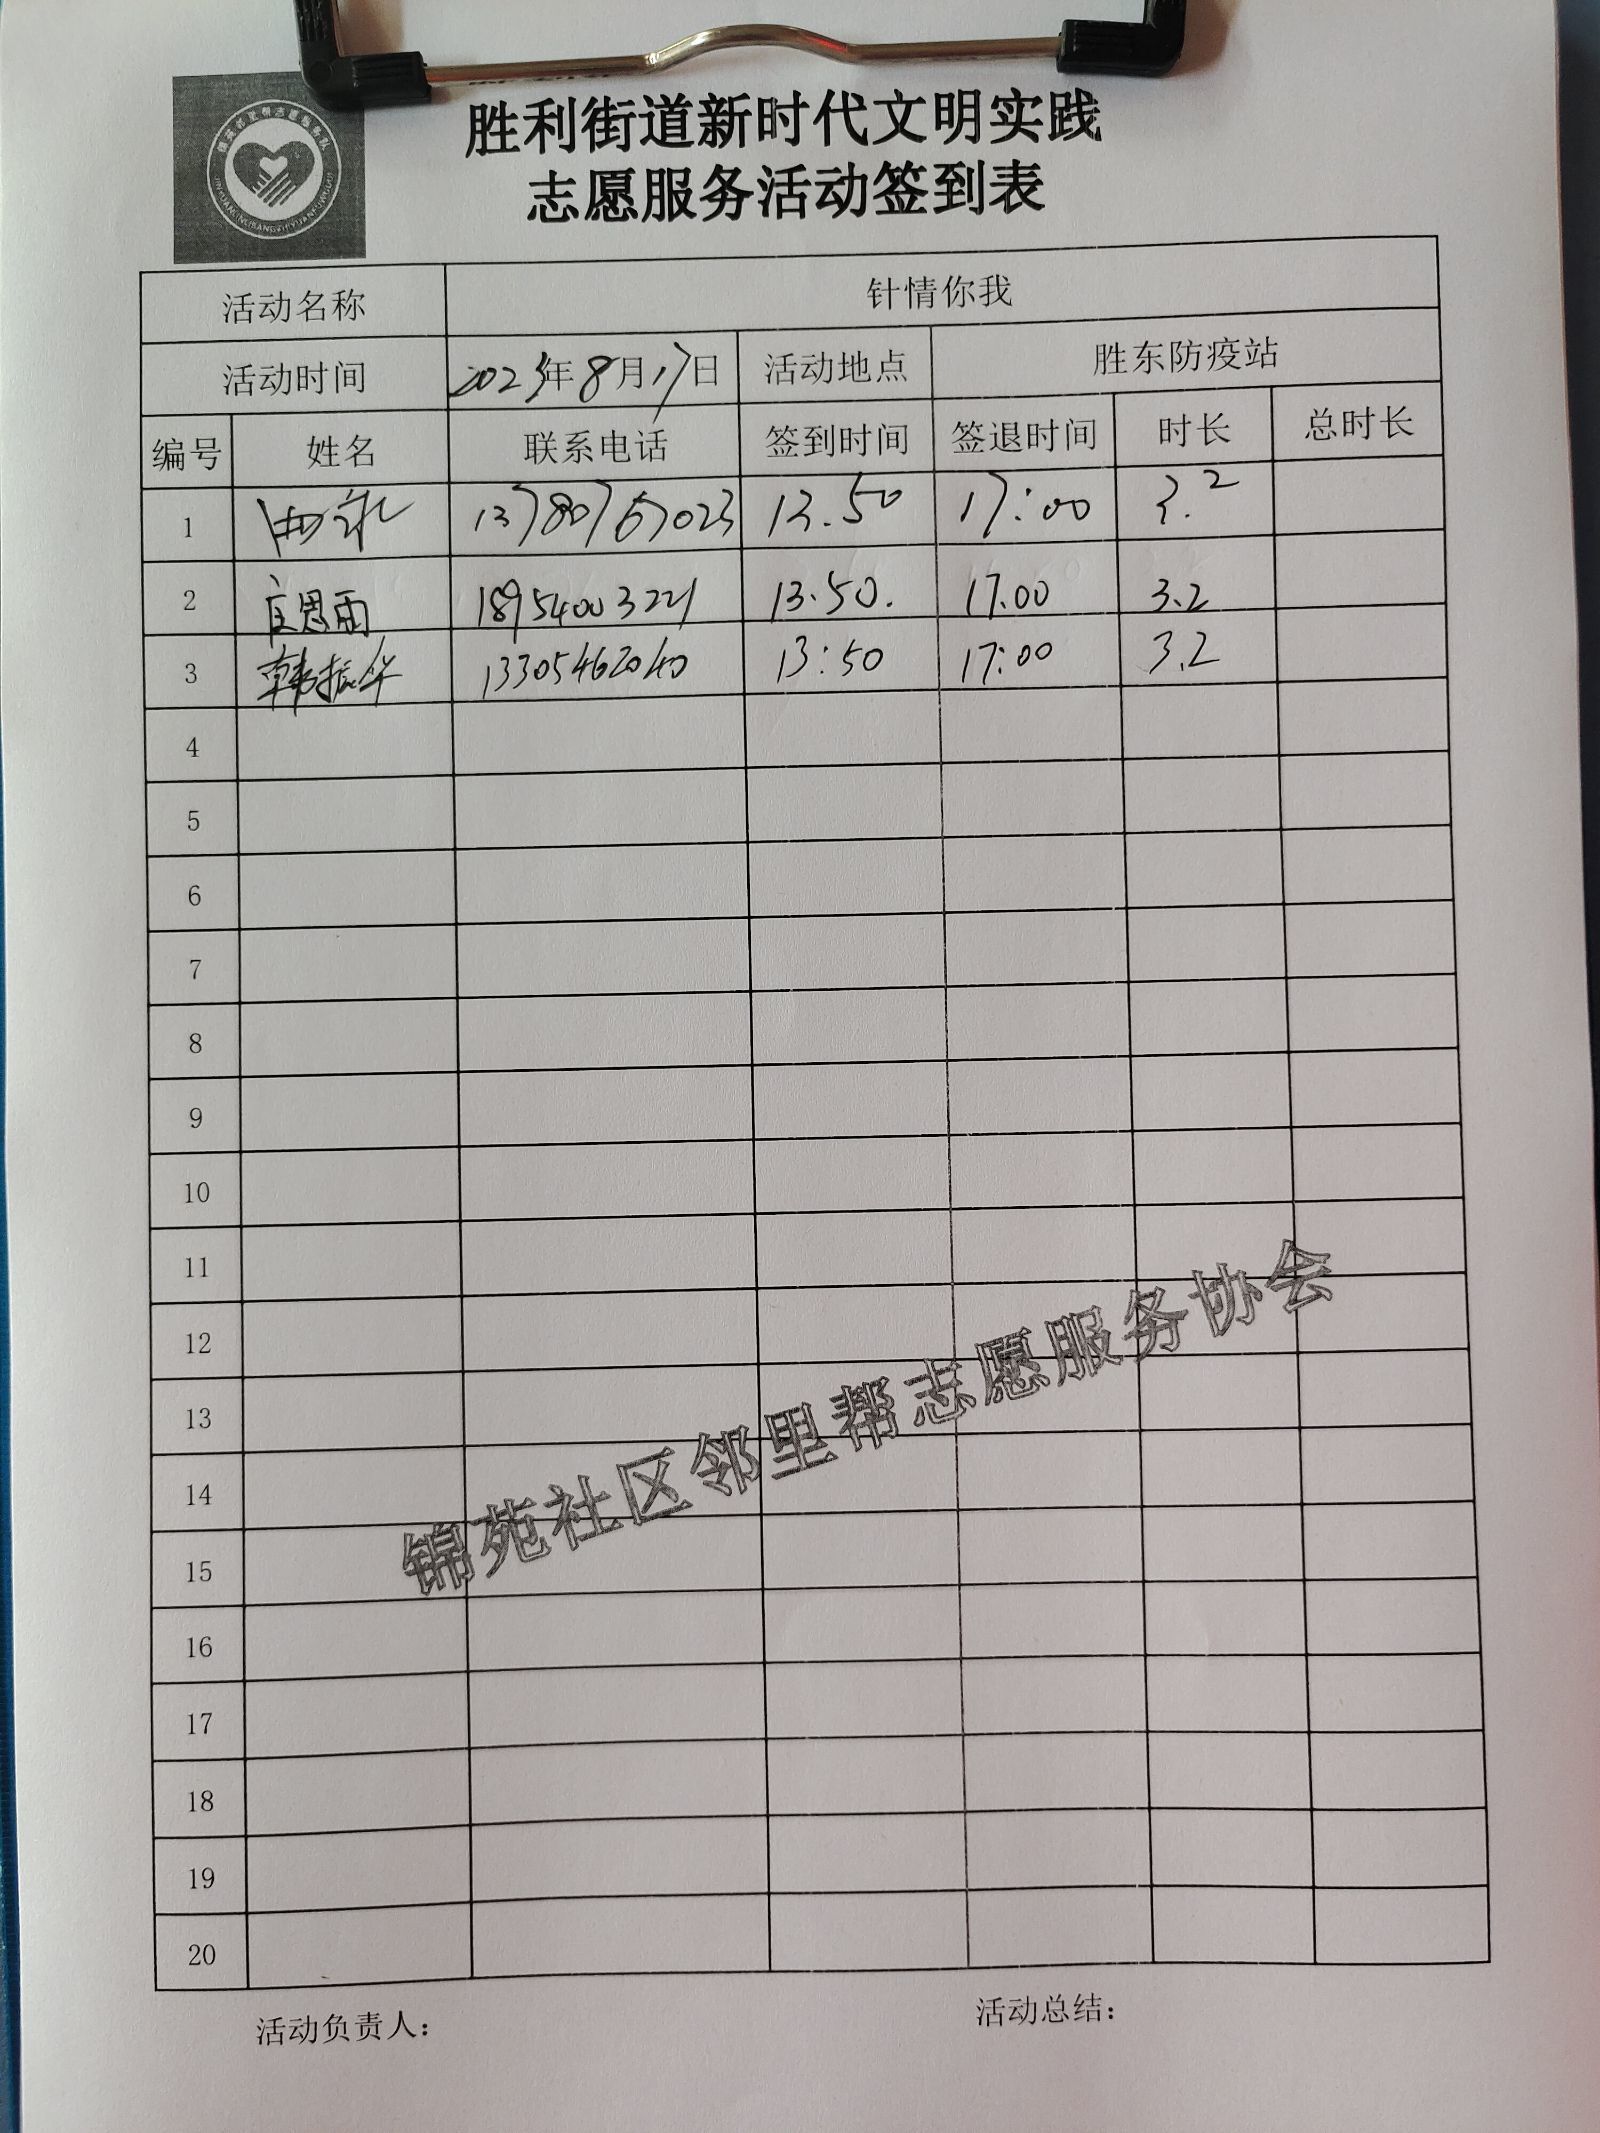 胜利街道新时代文明实践
志愿服务活动签到表
活动名称 针情你我
活动时间 2023年8月17日 活动地点 胜东防疫站
编号 姓名 联系电话 签到时间 签退时间 时长 总时长
1 13.50 17:00 3.2
2 18954003221 13.50. 17.00 3.2
3 韩振华 13305462040 13:50 17:00 3.2
4
5
6
7
8
9
10
11
12
13
14
15
16
17
18
19
20
锦苑社区邻里帮志愿服务协会
活动负责人： 活动总结：